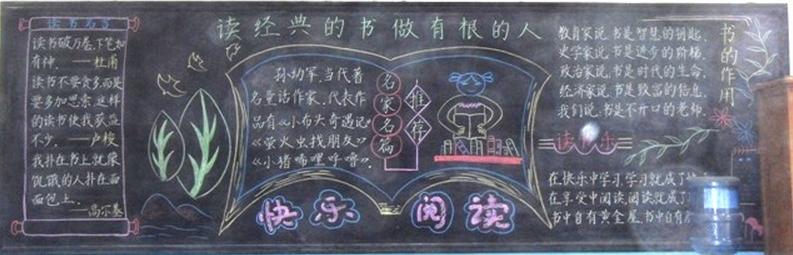 读书名言
读书破万卷，下笔如
有神。——杜甫
读书不要贪多，而是
要多加思索，这样
的读书使我获益
不少。——卢梭
我扑在书上，就像
饥饿的人扑在面
面包上。
——高尔基
读经典的书做有根的人
孙幼军，当代着
名童话作家。代表作
品有《小布头奇遇记》
《萤火虫找朋友》
《小猪唏哩呼噜》。
名家名篇
推荐
快乐阅读
书的作用
教育家说，书是智慧的钥匙。
史学家说，书是进步的阶梯。
政治家说，书是时代的生命。
经济家说，书是致富的信息。
我们说，书是不开口的老师。
读书乐
在快乐中学习，学习就成了
在享受中阅读，阅读就成了
书中自有黄金屋，书中自有